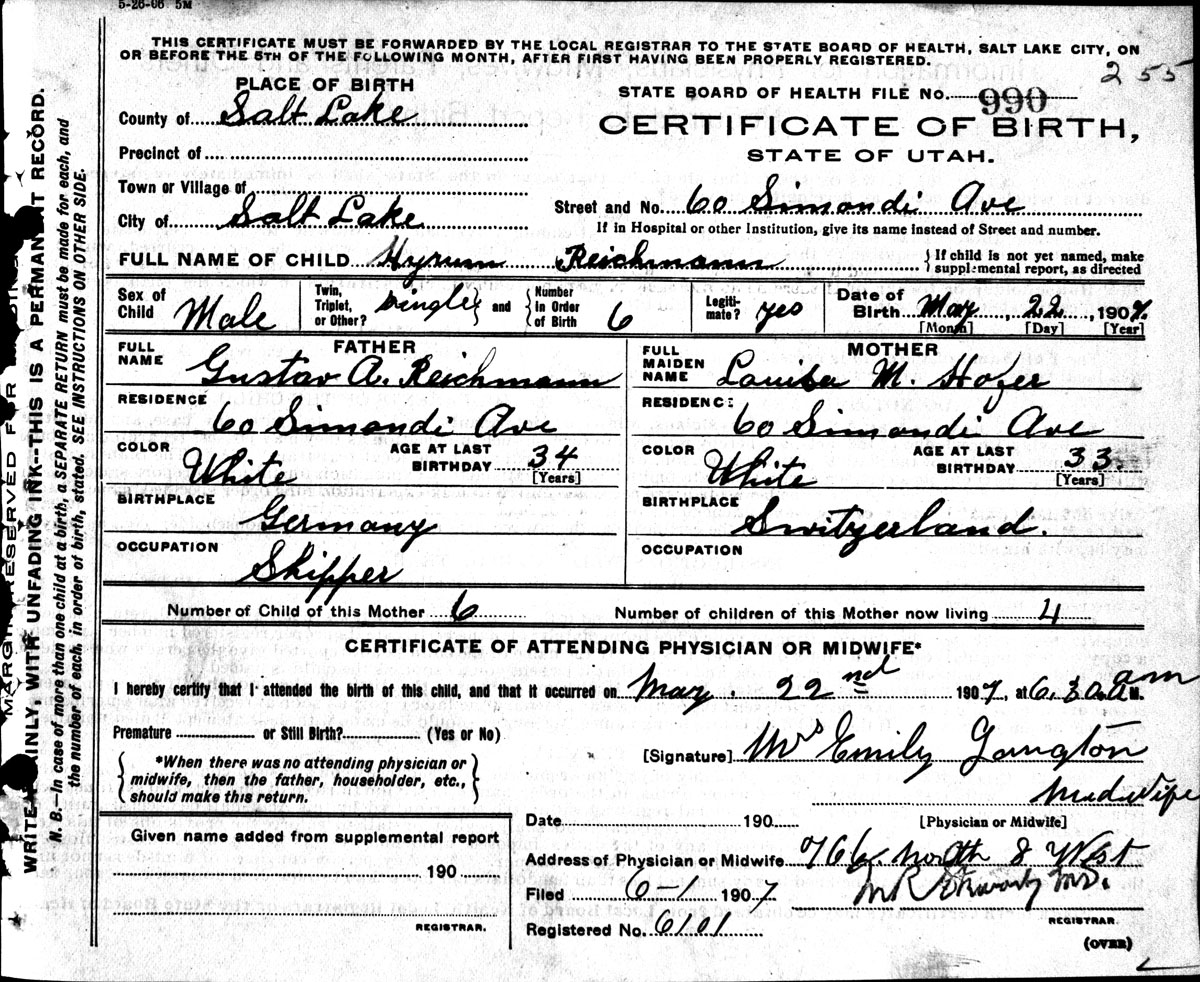 5-26-06 5M
THIS CERTIFICATE MUST BE FORWARDED BY THE LOCAL REGISTRAR TO THE STATE BOARD OF HEALTH, SALT LAKE CITY, ON
OR BEFORE THE 5TH OF THE FOLLOWING MONTH, AFTER FIRST HAVING BEEN PROPERLY REGISTERED.
255
PLACE OF BIRTH
STATE BOARD OF HEALTH FILE No. 990
County of Salt Lake
CERTIFICATE OF BIRTH,
Precinct of
STATE OF UTAH.
Town or Village of
City of Salt Lake
Street and No. 60 Simondi Ave
If in Hospital or other Institution, give its name instead of Street and number.
FULL NAME OF CHILD Hyrum Reichmann
{If child is not yet named, make
supplemental report, as directed
Sex of Child Male
Twin, Triplet, or Other? single
and
Number in Order of Birth 6
Legitimate? yes
Date of Birth May 22, 1907.
[Month] [Day] [Year]
FATHER
FULL NAME Gustav A. Reichmann
RESIDENCE
60 Simondi Ave
COLOR White
AGE AT LAST BIRTHDAY 34
[Years]
BIRTHPLACE
Germany
OCCUPATION
Skipper
MOTHER
FULL MAIDEN NAME Louisa M. Hofer
RESIDENCE
60 Simondi Ave
COLOR White
AGE AT LAST BIRTHDAY 33.
[Years]
BIRTHPLACE
Switzerland.
OCCUPATION
Number of Child of this Mother 6
Number of children of this Mother now living 4
CERTIFICATE OF ATTENDING PHYSICIAN OR MIDWIFE*
I hereby certify that I attended the birth of this child, and that it occurred on May. 22nd 1907, at 6.30 am M.
Premature or Still Birth? (Yes or No)
[Signature] Mrs Emily Langton
*When there was no attending physician or
midwife, then the father, householder, etc.,
should make this return.
Midwife
[Physician or Midwife]
Date 190
Given name added from supplemental report
190
REGISTRAR.
Address of Physician or Midwife 766 North 8 West
Filed 6-1 1907
M.D.
REGISTRAR.
Registered No. 6101
(OVER)
MARGIN RESERVED FOR BINDING
WRITE PLAINLY, WITH UNFADING INK--THIS IS A PERMANANT RECORD.
N. B.—In case of more than one child at a birth, a SEPARATE RETURN must be made for each, and
the number of each, in order of birth, stated. SEE INSTRUCTIONS ON OTHER SIDE.